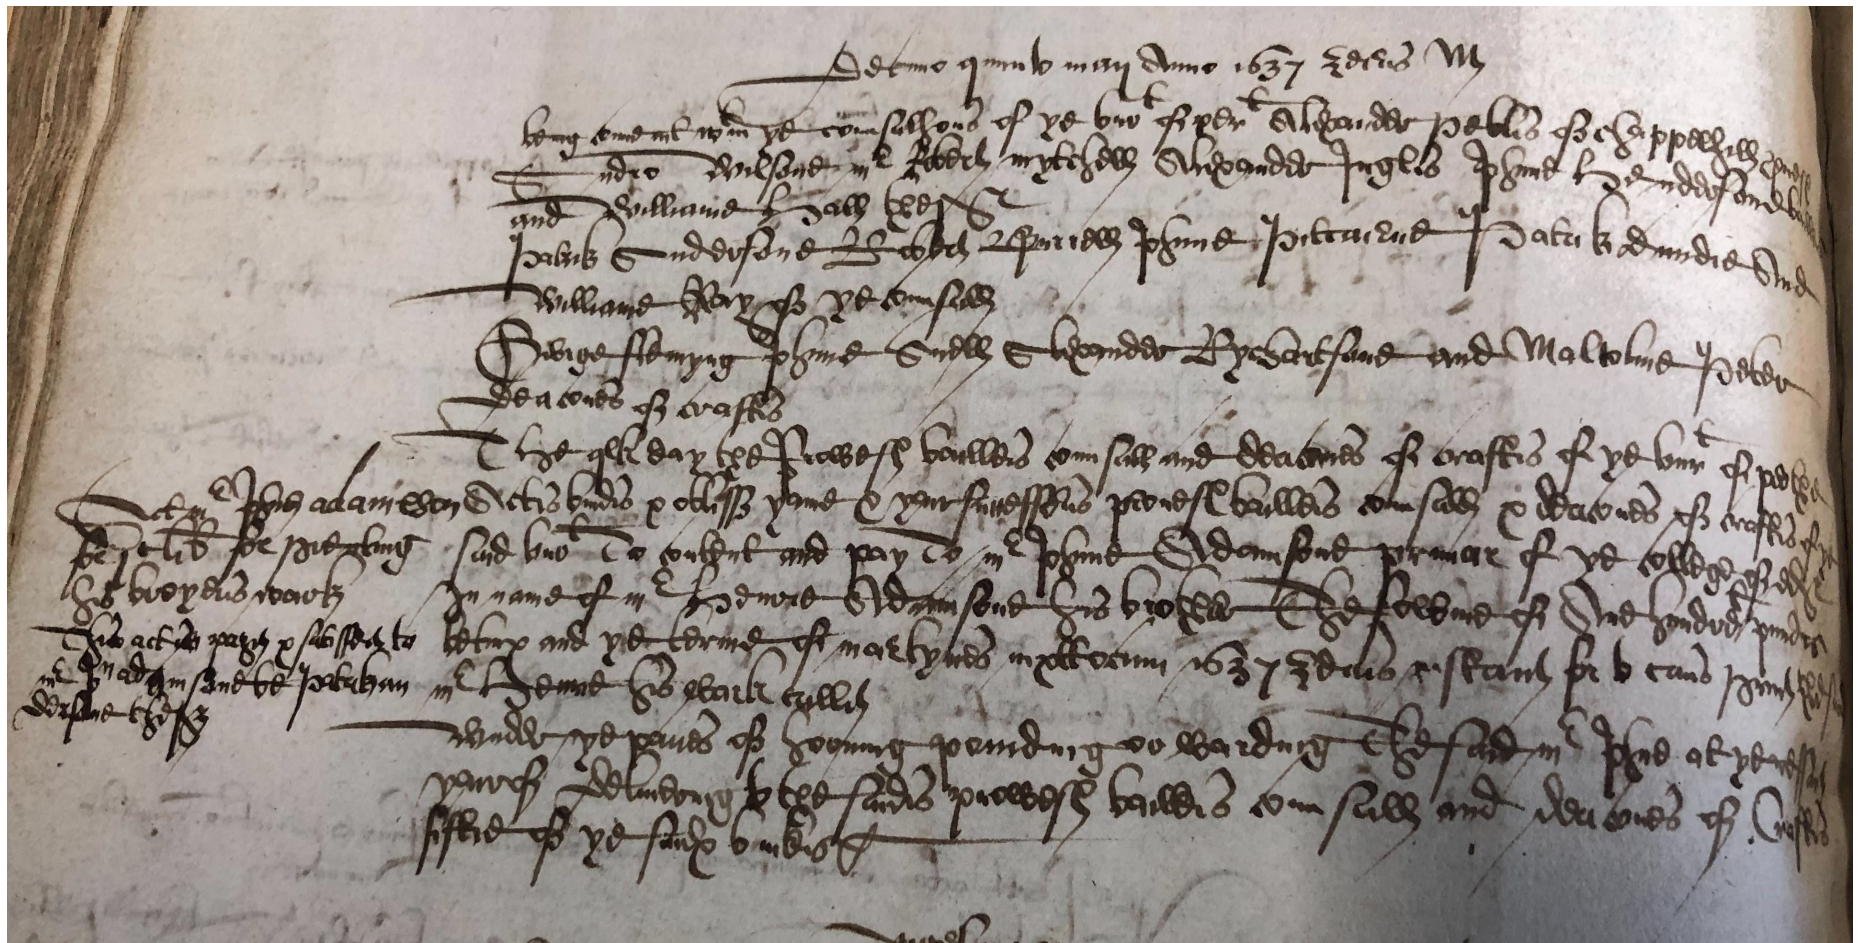 Decimo quinto maij Anno 1637 yeiris
being convenit wtin ye counsalhous of ye burt of pertht Alexander Peblis of chappelhill provest
Andro Wilsone mr Robert mytchell Alexander Inglis Jhone Hendersone baillies
and Williame Hall thesr
Patrik Andersone Robert Jhone Pitcairne Patrik dundie And
Williame Ray of ye counsall
George flemyng Jhone Snell Alexander Rychartsone and Malcolme Peter
deacones of craftis
The qlk day the Prowest baillies counsall and deacones of craftis of ye burt of perthe
Actis bindis & oblissis yame & yair successouris provest baillies counsall & deacones of craftis of ye
said burt To content and pay To mr Jhone Adamsone primar of ye colledge of edr
In name of mr Henrie Adamsone his brother The sowme of Ane hundreth pundis
betwix and ye terme of martymes nixttocum 1637 yeiris restand for
mr Henrie his wark callit
Wnder ye panes of horning poinding or warding The said mr Jhone at ye
yairof delivering to the saidis prowest baillies counsall and deacones of Craftis
fiftie of ye saids buikis
Act mr Jhon adamesone
for prenting
his broyeris wark
This act is payit & satisfeit to
mr Jn adamsone be Patrik an
dersone thesr